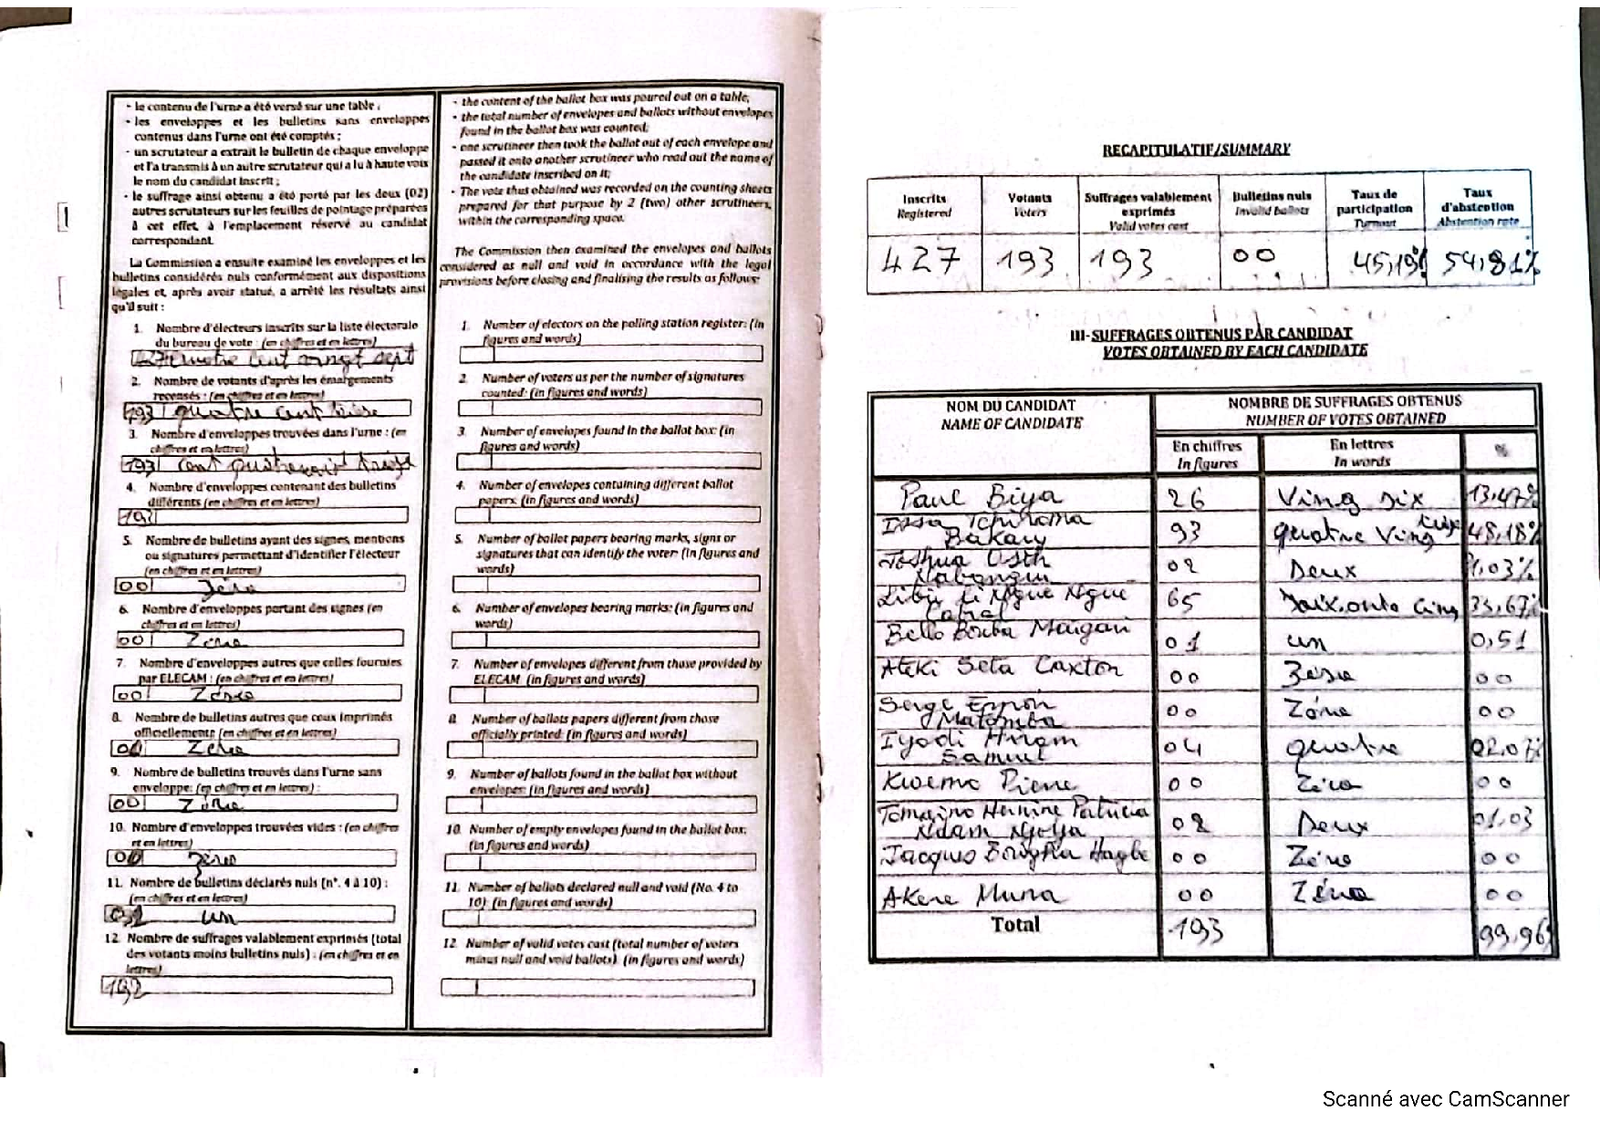 - le contenu de l'urne a été versé sur une table ;
- les enveloppes et les bulletins sans enveloppes
contenus dans l'urne ont été comptés ;
- un scrutateur a extrait le bulletin de chaque enveloppe
et l'a transmis à un autre scrutateur qui a lu à haute voix
le nom du candidat inscrit ;
- le suffrage ainsi obtenu a été porté par les deux (02)
autres scrutateurs sur les feuilles de pointage préparées
à cet effet, à l'emplacement réservé au candidat
correspondant.
La Commission a ensuite examiné les enveloppes et les
bulletins considérés nuls conformément aux dispositions
légales et, après avoir statué, a arrêté les résultats ainsi
qu'il suit :
1. Nombre d'électeurs inscrits sur la liste électorale
du bureau de vote : (en chiffres et en lettres)
427 quatre cent vingt sept
2. Nombre de votants d'après les émargements
recensés : (en chiffres et en lettres)
193 quatre cent
3. Nombre d'enveloppes trouvées dans l'urne : (en
chiffres et en lettres)
193 cent
4. Nombre d'enveloppes contenant des bulletins
différents (en chiffres et en lettres)
5. Nombre de bulletins ayant des signes, mentions
ou signatures permettant d'identifier l'électeur
(en chiffres et en lettres)
00 Zéro
6. Nombre d'enveloppes portant des signes (en
chiffres et en lettres)
00 Zéro
7. Nombre d'enveloppes autres que celles fournies
par ELECAM : (en chiffres et en lettres)
00 Zéro
8. Nombre de bulletins autres que ceux imprimés
officiellement: (en chiffres et en lettres)
00 Zéro
9. Nombre de bulletins trouvés dans l'urne sans
enveloppe: (en chiffres et en lettres) :
00 Zéro
10. Nombre d'enveloppes trouvées vides : (en chiffres
et en lettres)
00 Zéro
11. Nombre de bulletins déclarés nuls (n°. 4 à 10) :
(en chiffres et en lettres)
un
12. Nombre de suffrages valablement exprimés (total
des votants moins bulletins nuls) : (en chiffres et en
lettres)
192
- the content of the ballot box was poured out on a table;
- the total number of envelopes and ballots without envelopes
found in the ballot box was counted;
- one scrutineer then took the ballot out of each envelope and
passed it onto another scrutineer who read out the name of
the candidate inscribed on it;
- The vote thus obtained was recorded on the counting sheets
prepared for that purpose by 2 (two) other scrutineers,
within the corresponding space.
The Commission then examined the envelopes and ballots
considered as null and void in accordance with the legal
provisions before closing and finalising the results as follows:
1. Number of electors on the polling station register: (in
figures and words)
2. Number of voters as per the number of signatures
counted: (in figures and words)
3. Number of envelopes found in the ballot box: (in
figures and words)
4. Number of envelopes containing different ballot
papers: (in figures and words)
5. Number of ballot papers bearing marks, signs or
signatures that can identify the voter: (in figures and
words)
6. Number of envelopes bearing marks: (in figures and
words)
7. Number of envelopes different from those provided by
ELECAM: (in figures and words)
8. Number of ballots papers different from those
officially printed: (in figures and words)
9. Number of ballots found in the ballot box without
envelopes: (in figures and words)
10. Number of empty envelopes found in the ballot box:
(in figures and words)
11. Number of ballots declared null and void (No. 4 to
10): (in figures and words)
12. Number of valid votes cast (total number of voters
minus null and void ballots): (in figures and words)
RECAPITULATIF/SUMMARY
Inscrits Votants Suffrages valablement Bulletins nuls Taux de Taux
Registered Voters exprimés Invalid ballots participation d'abstention
Valid votes cast Turnout Abstention rate
427 193 193 00 45,19% 54,81%
III-SUFFRAGES OBTENUS PAR CANDIDAT
VOTES OBTAINED BY EACH CANDIDATE
NOM DU CANDIDAT NOMBRE DE SUFFRAGES OBTENUS
NAME OF CANDIDATE NUMBER OF VOTES OBTAINED
En chiffres En lettres %
In figures In words
Paul Biya 26 Ving six 13,47%
Issa Tchiroma
Bakary 93 quatre Ving 48,18%
Joshua Osih
02 Deux 1,03%
Libii Li Ngue Ngue
Cabral 65 cinq 33,67%
Bello Bouba Maigari 01 un 0,51
Ateki Seta Caxton 00 Zéro 00
Serge Espoir
Matomba 00 Zéro 00
Iyodi Hiram
Samuel 04 quatre 02,07%
Kwemo Pierre 00 Zéro 00
Tomaino Hermine Patricia
Ndam Njoya 02 Deux 01,03
Jacques Bougha Hagbe 00 Zéro 00
Akere Muna 00 Zéro 00
Total 193 99,96
Scanné avec CamScanner